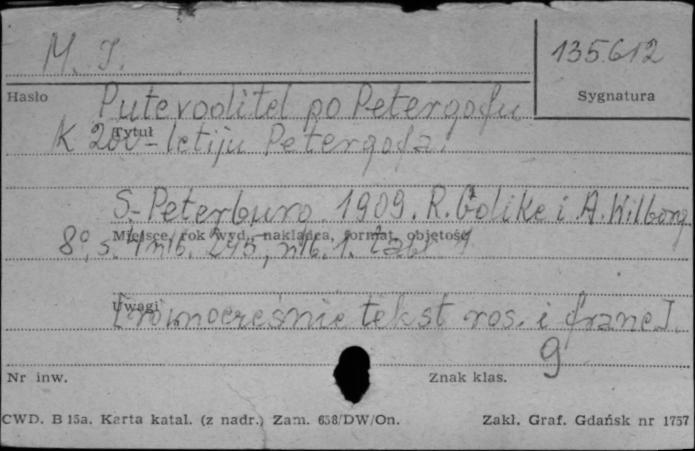 M. I.
135.612
Hasło
Sygnatura
Putevoditel po Petergofu
Tytuł
K 200-letiju Petergofa.
S.-Peterburg 1909. R. Golike i A. Wilborg
Miejsce, rok wyd., nakładca, format, objętość
8°, s. nlb. nlb. 1. tabl.
Uwagi
[równocześnie tekst ros. i franc].
9
Nr inw.
Znak klas.
CWD. B 15a. Karta katal. (z nadr.) Zam. 658/DW/On.
Zakł. Graf. Gdańsk nr 1757